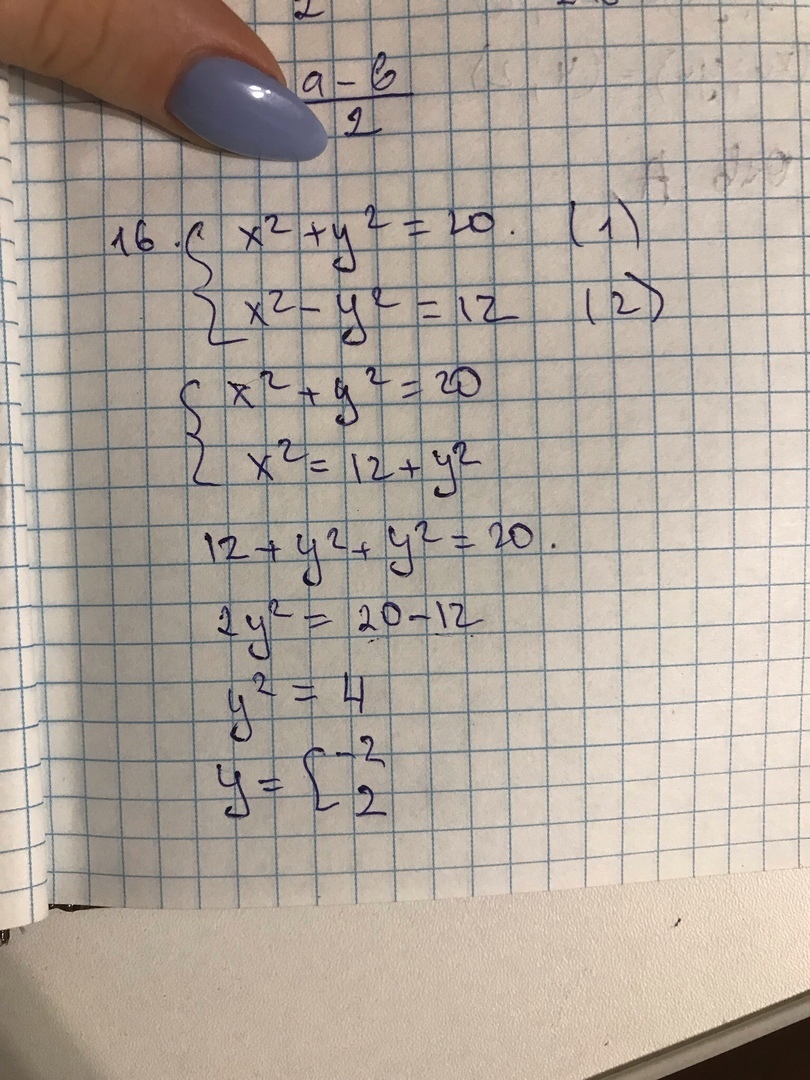 a - b
2
16. { x² + y² = 20. (1)
x² - y² = 12 (2)
{ x² + y² = 20
x² = 12 + y²
12 + y² + y² = 20.
2y² = 20 - 12
y² = 4
y = [ -2
2